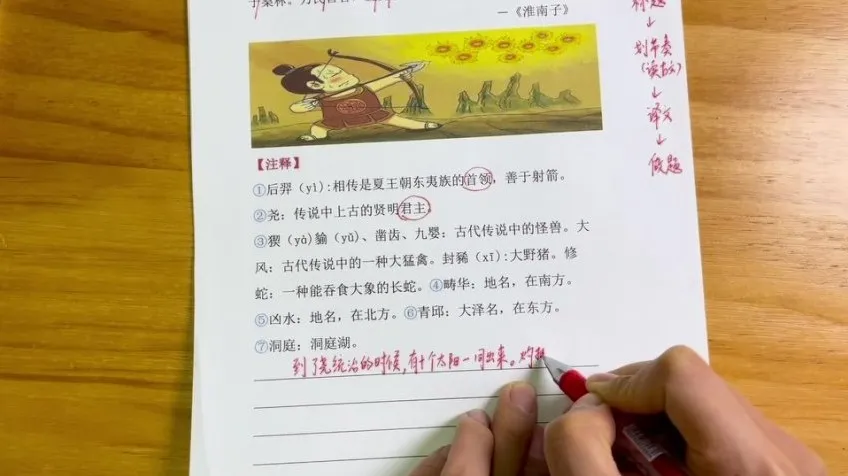 —《淮南子》
标题
↓
划节奏
(读古文)
↓
译文
↓
做题
【注释】
①后羿(yì):相传是夏王朝东夷族的首领,善于射箭。
②尧:传说中上古的贤明君主。
③猰(yà)貐(yǔ)、凿齿、九婴:古代传说中的怪兽。大
风:古代传说中的一种大猛禽。封豨(xī):大野猪。修
蛇:一种能吞食大象的长蛇。④畴华:地名,在南方。
⑤凶水:地名,在北方。⑥青邱:大泽名,在东方。
⑦洞庭:洞庭湖。
到了尧统治的时候,有十个太阳一同出来。灼热